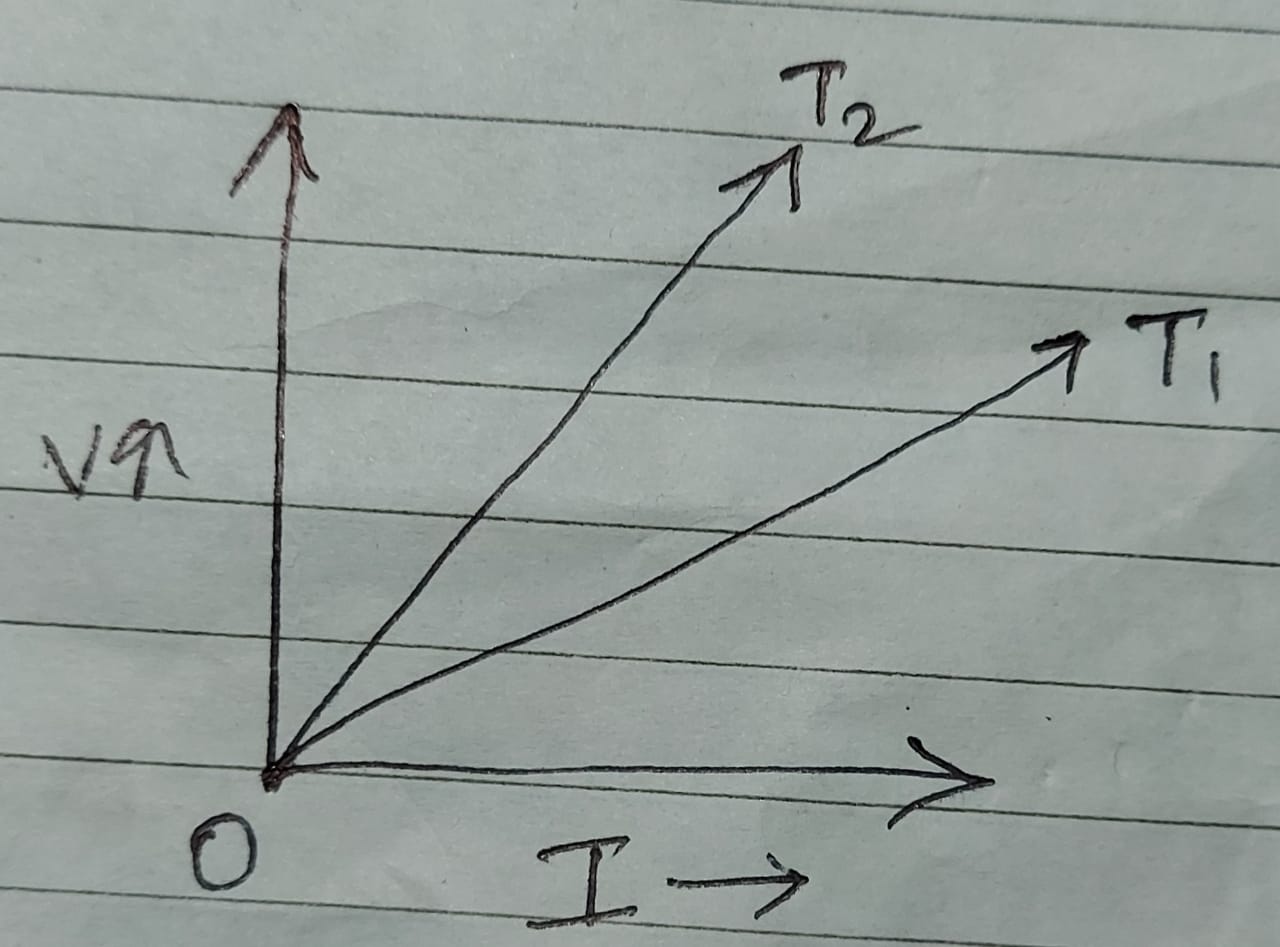 T₂
T₁
V↑
O
I →